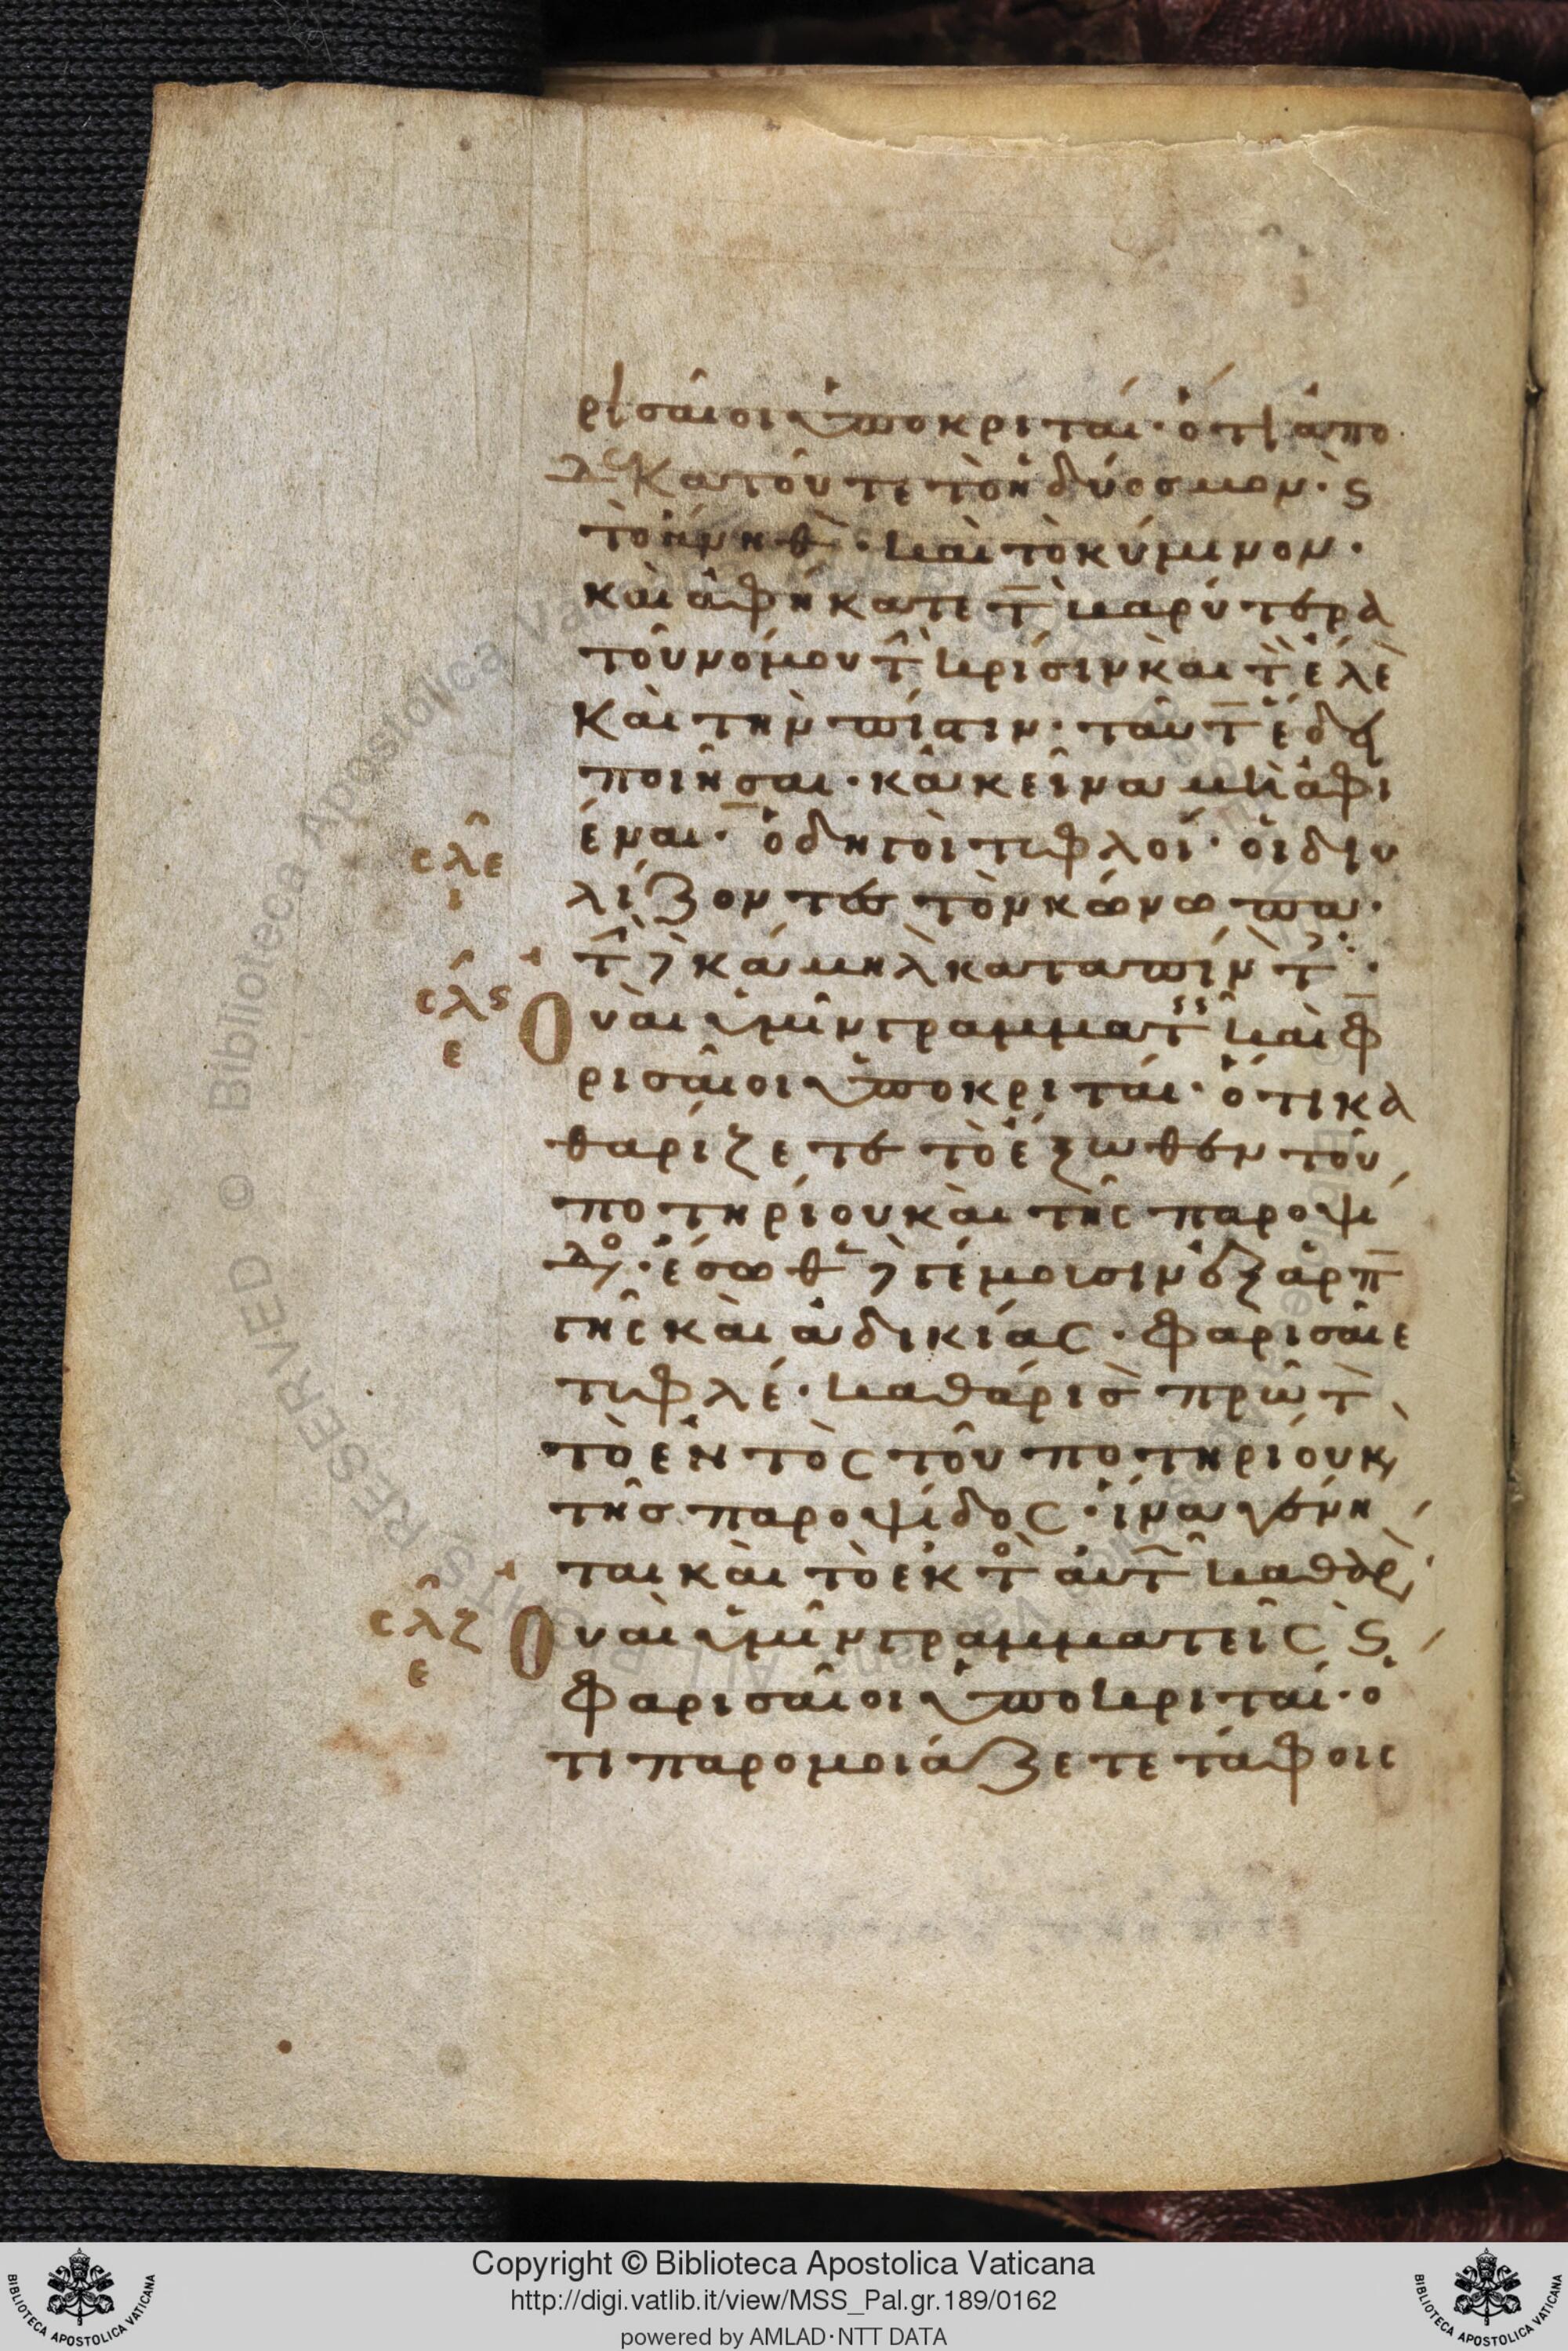 ρισαῖοι ὑποκριταί· ὅτι ἀπο
δεκατοῦτε τὸ ἡδύοσμον· ϛ
τὸ ἄνηθ· καὶ τὸ κύμινον·
καὶ ἀφήκατε τ̄ βαρύτερα
τοῦ νόμου τ̂ κρίσιν καὶ τ̀ ἔλε
καὶ τὴν πίστιν· ταῦτ̄ ἔδει
ποιῆσαι· κἀκεῖνα μὴ ἀφι
έναι· ὁδηγοὶ τυφλοί· οἱ διυ
σλε
λίζοντες τὸν κώνωπα·
ι
τ̂ δὲ κάμηλ καταπίν τ·
σλϛ
Οὐαὶ ὑμῖν γραμματ̂ καὶ φ
ε
ρισαῖοι ὑποκριταί· ὅτι κα
θαρίζετε τὸ ἔξωθεν τοῦ
ποτηρίου καὶ τῆς παροψί
δο· ἔσωθ δὲ γέμουσιν ἐξ ἁρπ̄
γῆς καὶ ἀδικίας· φαρισαῖε
τυφλέ· καθάρισ πρῶτ
τὸ ἐντὸς τοῦ ποτηρίου κ,
τῆς παροψίδος· ἵνα γένη
ται καὶ τὸ ἐκτὸ αὐτ̂ καθαρ
σλζ
Οὐαὶ ὑμῖν γραμματεῖς ϛ
ε
φαρισαῖοι ὑποκριταί· ὅ
τι παρομοιάζετε τάφοις
Copyright © Biblioteca Apostolica Vaticana
http://digi.vatlib.it/view/MSS_Pal.gr.189/0162
powered by AMLAD·NTT DATA
BIBLIOTECA APOSTOLICA VATICANA
BIBLIOTECA APOSTOLICA VATICANA